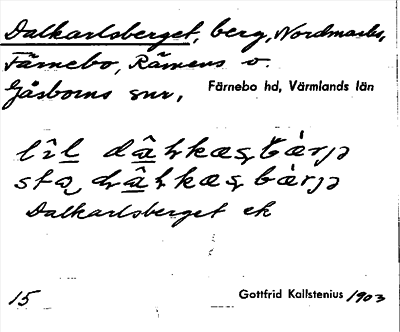 Dalkarlsberget, berg, Nordmarks,
Färnebo, Rämens o.
Gåsborns snr,
Färnebo hd, Värmlands län
Dalkarlsberget ek
15
Gottfrid Kallstenius 1903